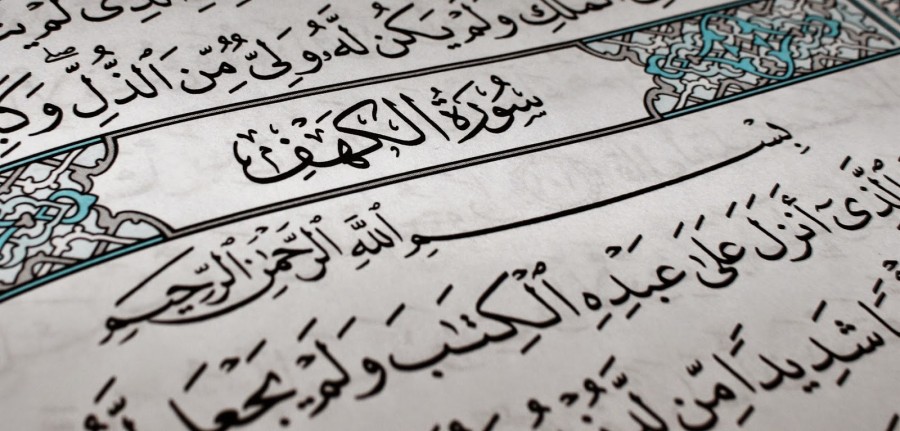 ٱلْمُلْكِ وَلَمْ يَكُن لَّهُۥ وَلِىٌّ مِّنَ ٱلذُّلِّ ۖ وَكَبِّ
سُورَةُ الكَهْفِ
بِسْمِ ٱللَّهِ ٱلرَّحْمَٰنِ ٱلرَّحِيمِ
ٱلَّذِىٓ أَنزَلَ عَلَىٰ عَبْدِهِ ٱلْكِتَٰبَ وَلَمْ يَجْعَل
شَدِيدًا مِّن لَّدُنْ